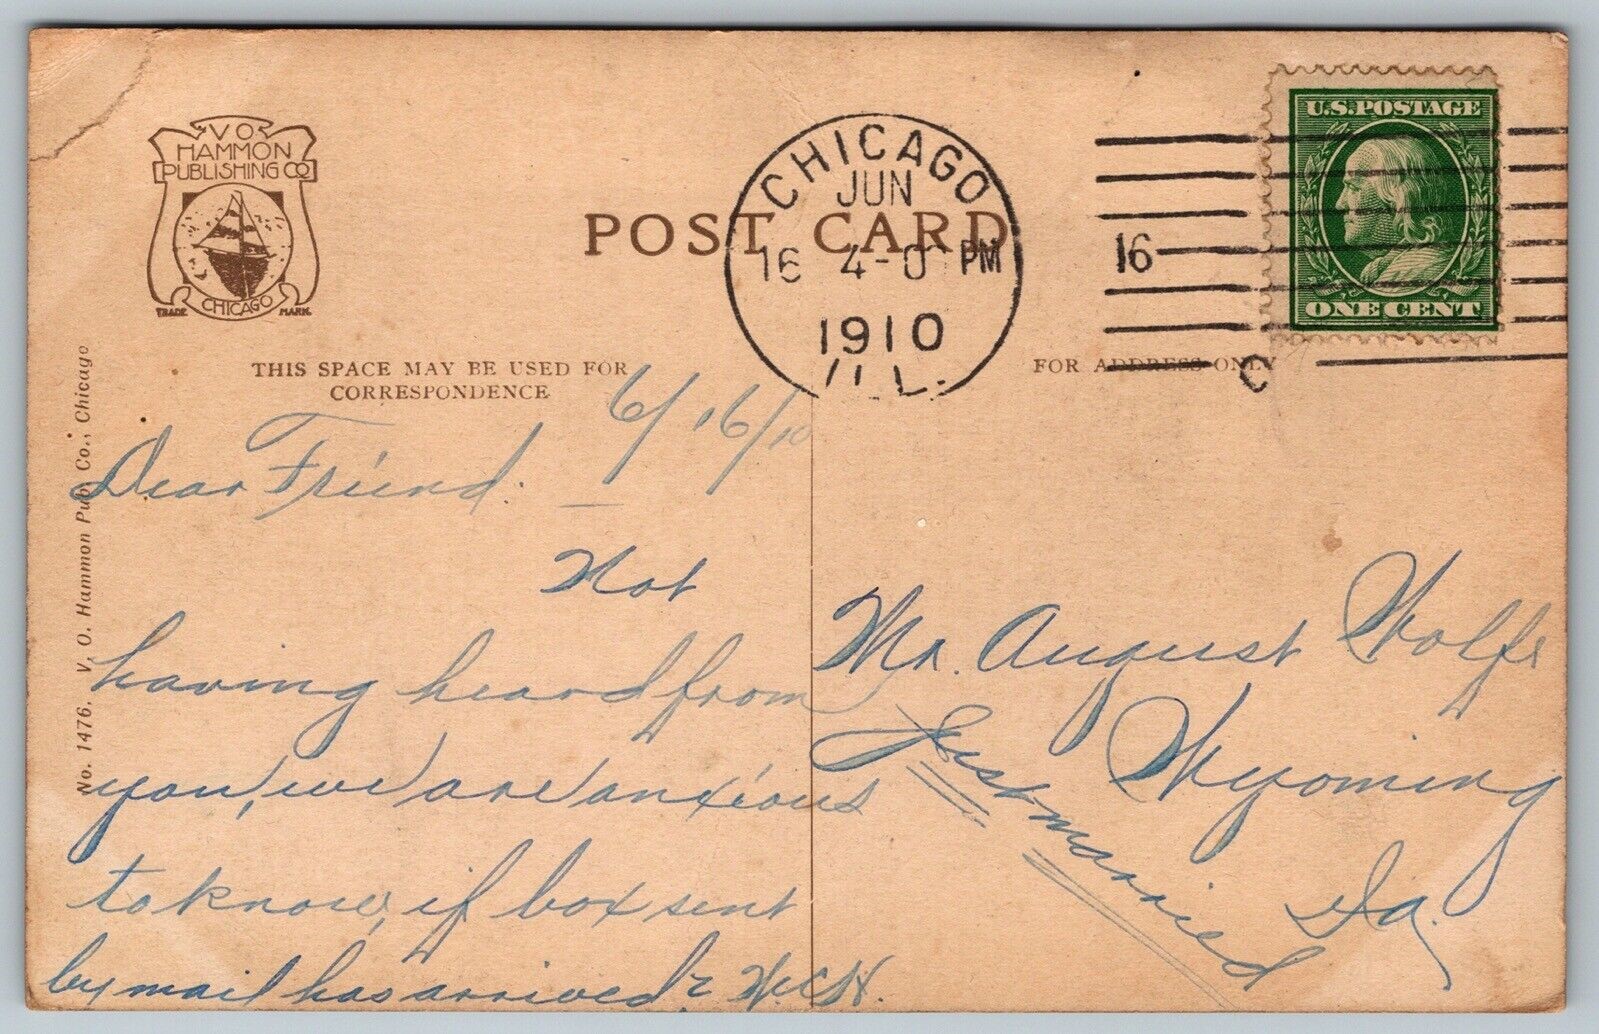 V O
HAMMON
PUBLISHING CO
CHICAGO
TRADE MARK
POST CARD
CHICAGO
JUN
16 4-0 PM
1910
ILL.
16
C
U.S. POSTAGE
ONE CENT
THIS SPACE MAY BE USED FOR
CORRESPONDENCE
FOR ADDRESS ONLY
No. 1476. V. O. Hammon Pub. Co., Chicago
6/16/10
Dear Friend.
Not
having heard from
you, we are anxious
to know, if box sent
by mail has arrived? W.C.H.
Mr. August Wolfe
Wyoming
Ia.
Just married